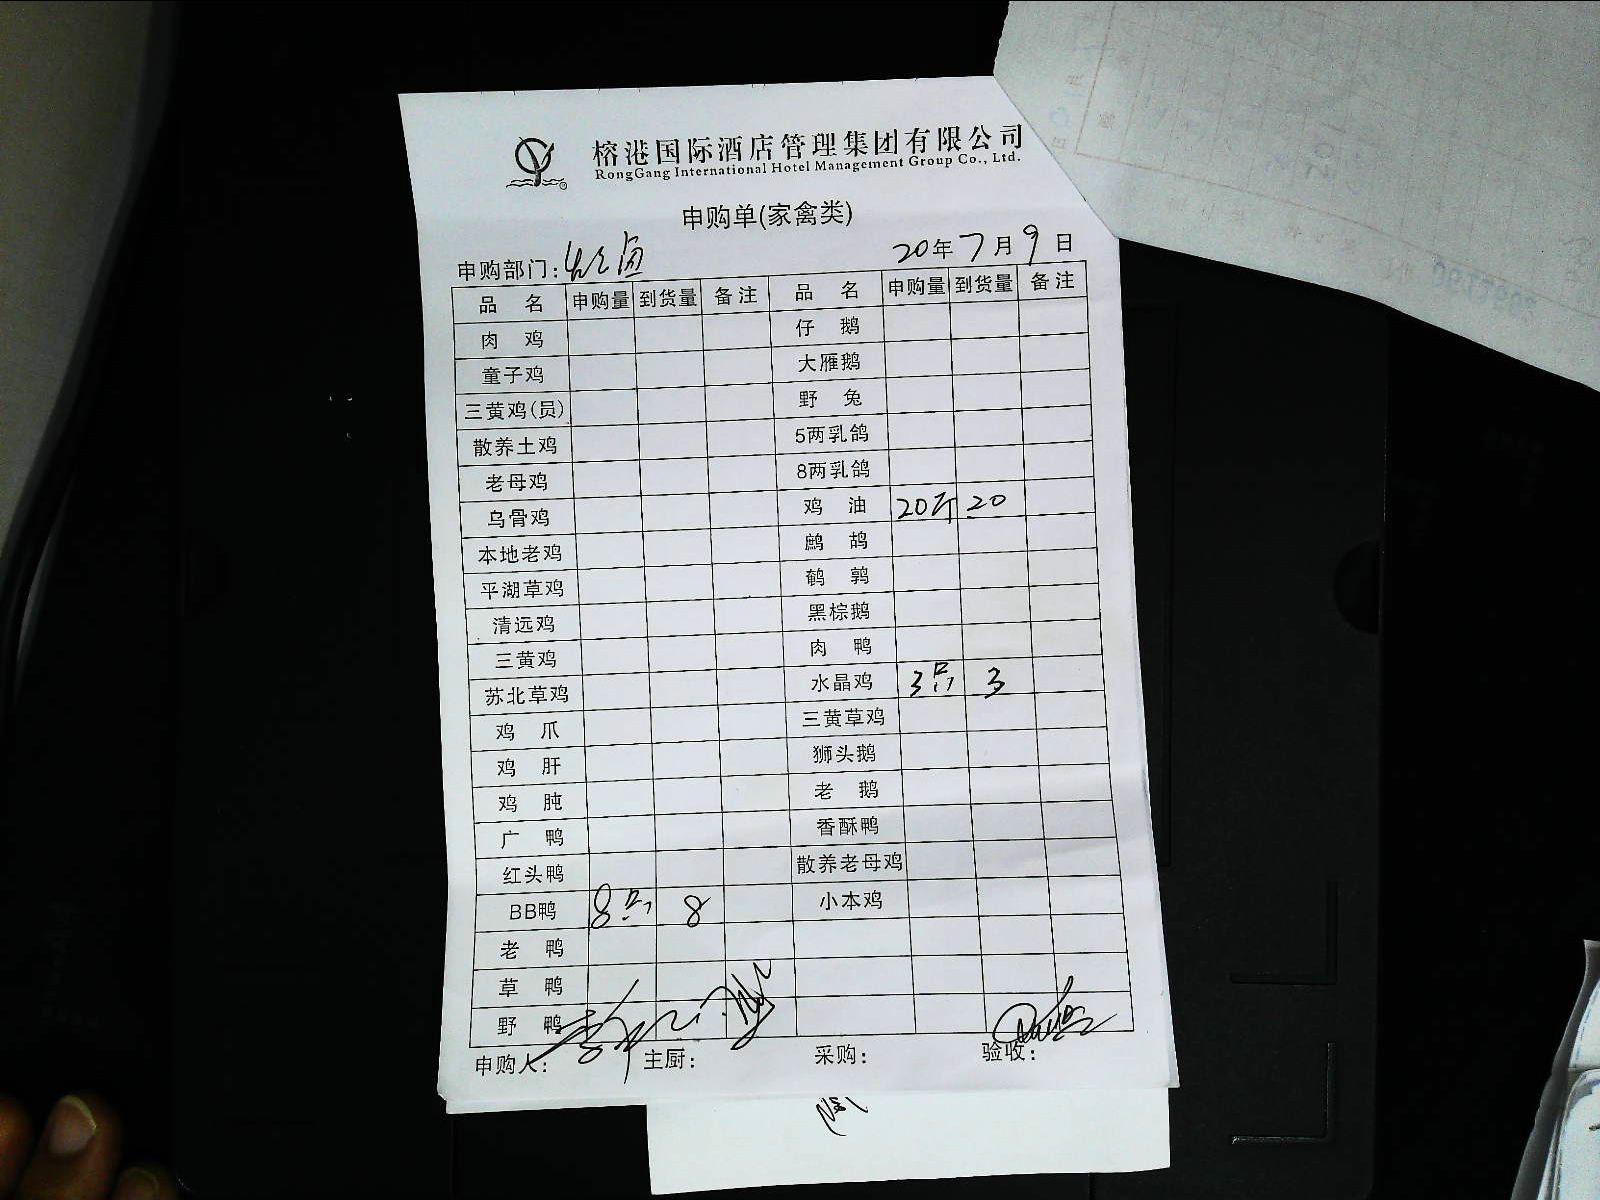 榕港国际酒店管理集团有限公司
RongGang International Hotel Management Group Co., Ltd.
申购单(家禽类)
申购部门: 20年7月9日
品 名 申购量 到货量 备注 品 名 申购量 到货量 备注
肉 鸡 仔 鹅
童子鸡 大雁鹅
三黄鸡(员) 野 兔
散养土鸡 5两乳鸽
老母鸡 8两乳鸽
乌骨鸡 鸡 油 20斤 20
本地老鸡 鹧 鸪
平湖草鸡 鹌 鹑
清远鸡 黑棕鹅
三黄鸡 肉 鸭
苏北草鸡 水晶鸡 3只 3
鸡 爪 三黄草鸡
鸡 肝 狮头鹅
鸡 肫 老 鹅
广 鸭 香酥鸭
红头鸭 散养老母鸡
BB鸭 8只 8 小本鸡
老 鸭
草 鸭
野 鸭
申购人: 主厨: 采购: 验收: